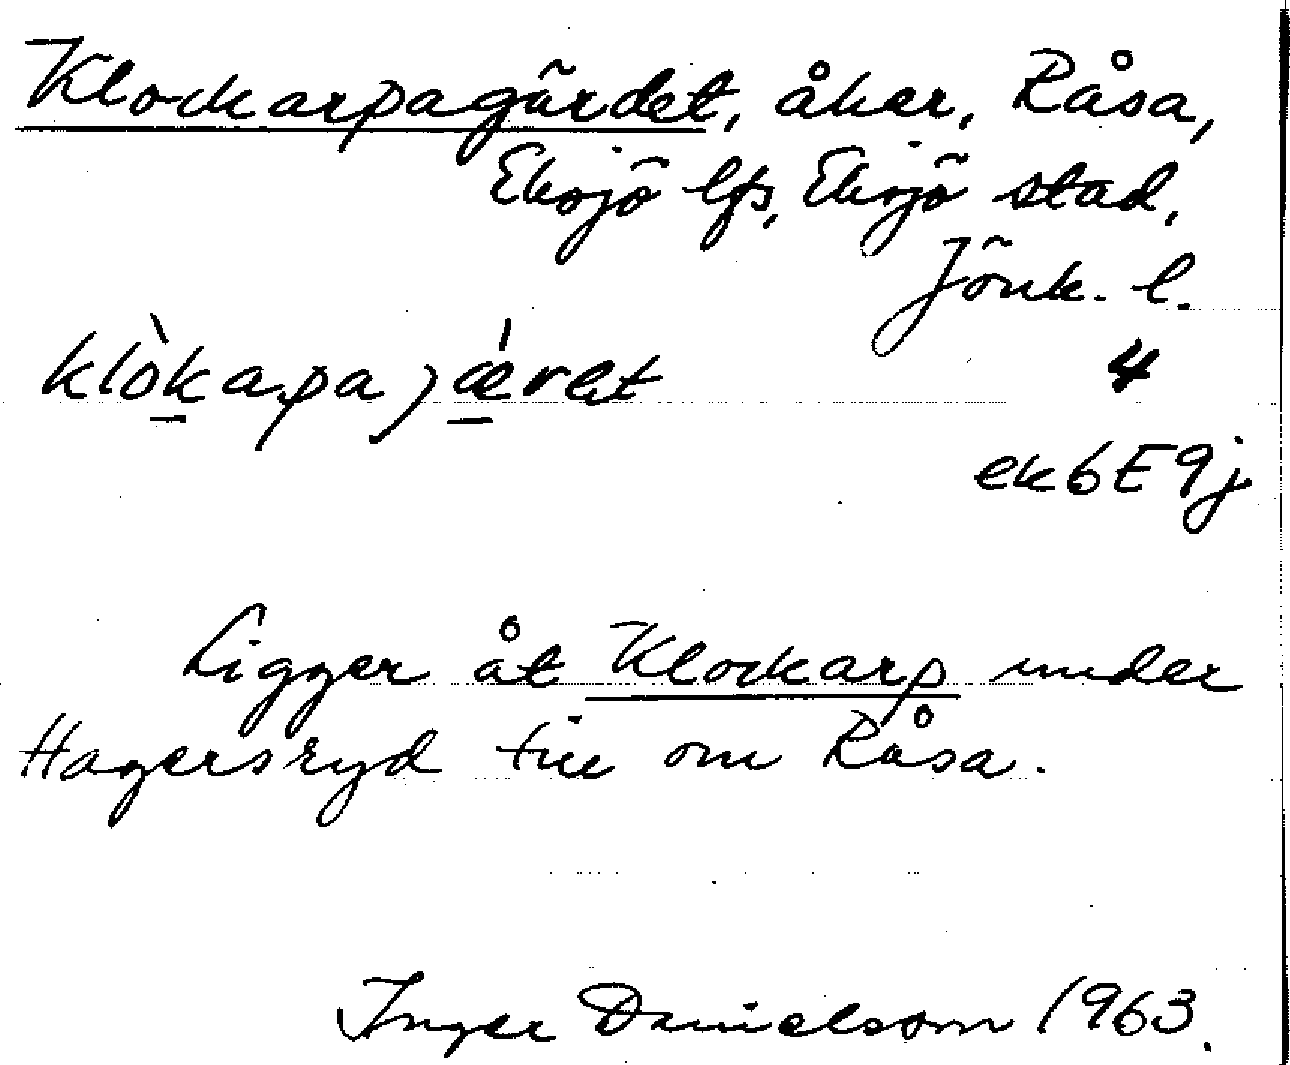 Klockarpagärdet, åker, Råsa,
Eksjö lfs, Eksjö stad,
Jönk. l.
klòkapajǽret
4
ek 6E9j
Ligger åt Klockarp under
Hagersryd till om Råsa.
Inger Danielsson 1963.